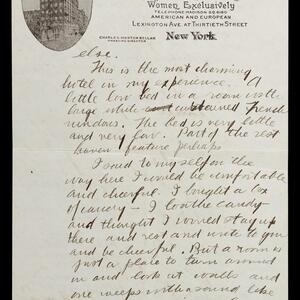 Women, Exclusively
TELEPHONE MADISON SQ. 6160
AMERICAN AND EUROPEAN
LEXINGTON AVE. AT THIRTIETH STREET
New York
MANAGING DIRECTOR
else.
This is the most charming
hotel in my experience. A
little low bed in a room with
large white curtained French
windows. The bed is very little
and very low. Part of the rest
haven feature perhaps
I said to myself on the
way here I would be comfortable
and cheerful. I bought a box
of candy — I loathe candy —
and thought I would stay up
there and rest and write to you
and be cheerful. But a room is
just a place to turn around
in and look at walls and
one weeps with a sound like